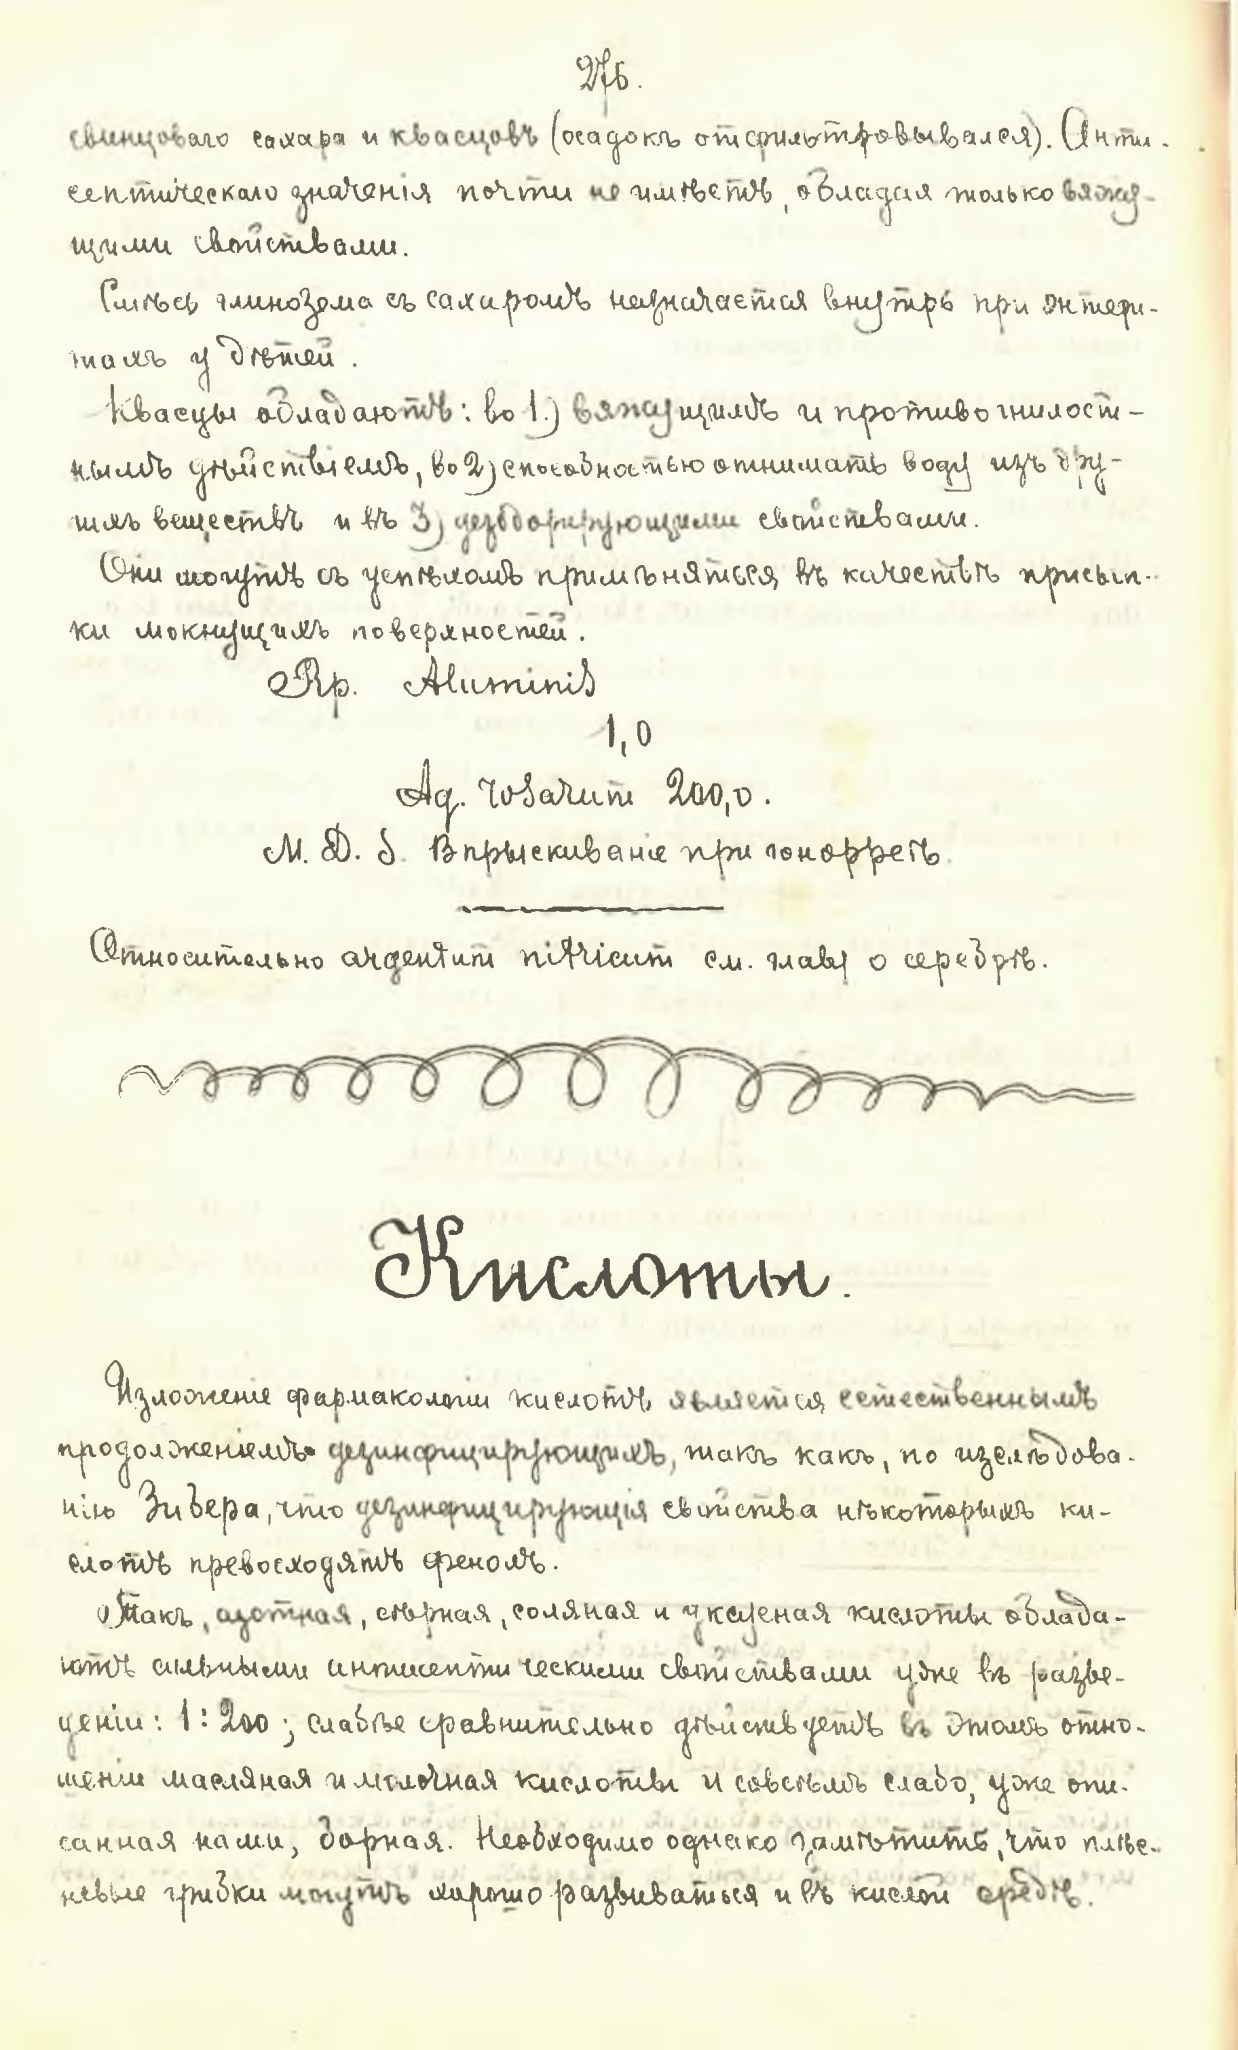 276.
свинцоваго сахара и квасцовъ (осадокъ отфильтровывался). Анти-
септическаго значенія почти не имѣетъ, обладая только вяжу-
щими свойствами.
Смѣсь глинозема съ сахаромъ назначается внутрь при энтери-
тахъ у дѣтей.
Квасцы обладаютъ: во 1.) вяжущимъ и противогнилост-
нымъ дѣйствіемъ, во 2) способностью отнимать воду изъ дру-
гихъ веществъ и въ 3) дезодорирующими свойствами.
Они могутъ съ успѣхомъ примѣняться въ качествѣ присып-
ки мокнущихъ поверхностей.
Rp. Aluminis
1,0
Aq. rosarum 200,0.
M. D. S. Впрыскиваніе при гонорреѣ.
Относительно argentum nitricum см. главу о серебрѣ.
Кислоты.
Изложеніе фармакологіи кислотъ является естественнымъ
продолженіемъ дезинфицирующихъ, такъ какъ, по изслѣдова-
нію Зибера, что дезинфицирующія свойства нѣкоторыхъ ки-
слотъ превосходятъ фенолъ.
Такъ, азотная, сѣрная, соляная и уксусная кислоты облада-
ютъ сильными антисептическими свойствами уже въ разве-
деніи: 1:200; слабѣе сравнительно дѣйствуетъ въ этомъ отно-
шеніи масляная и молочная кислоты и совсѣмъ слабо, уже опи-
санная нами, борная. Необходимо однако замѣтить, что плѣс-
невые грибки могутъ хорошо развиваться и въ кислой средѣ.